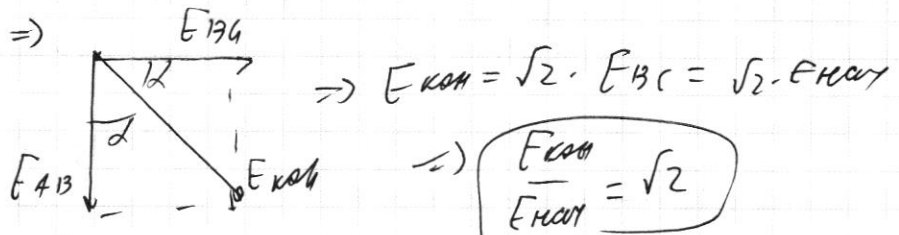 =>
E_BC
α
α
E_AB
E_кон
=> E_кон = √2 · E_BC = √2 · E_нач
=> E_кон / E_нач = √2